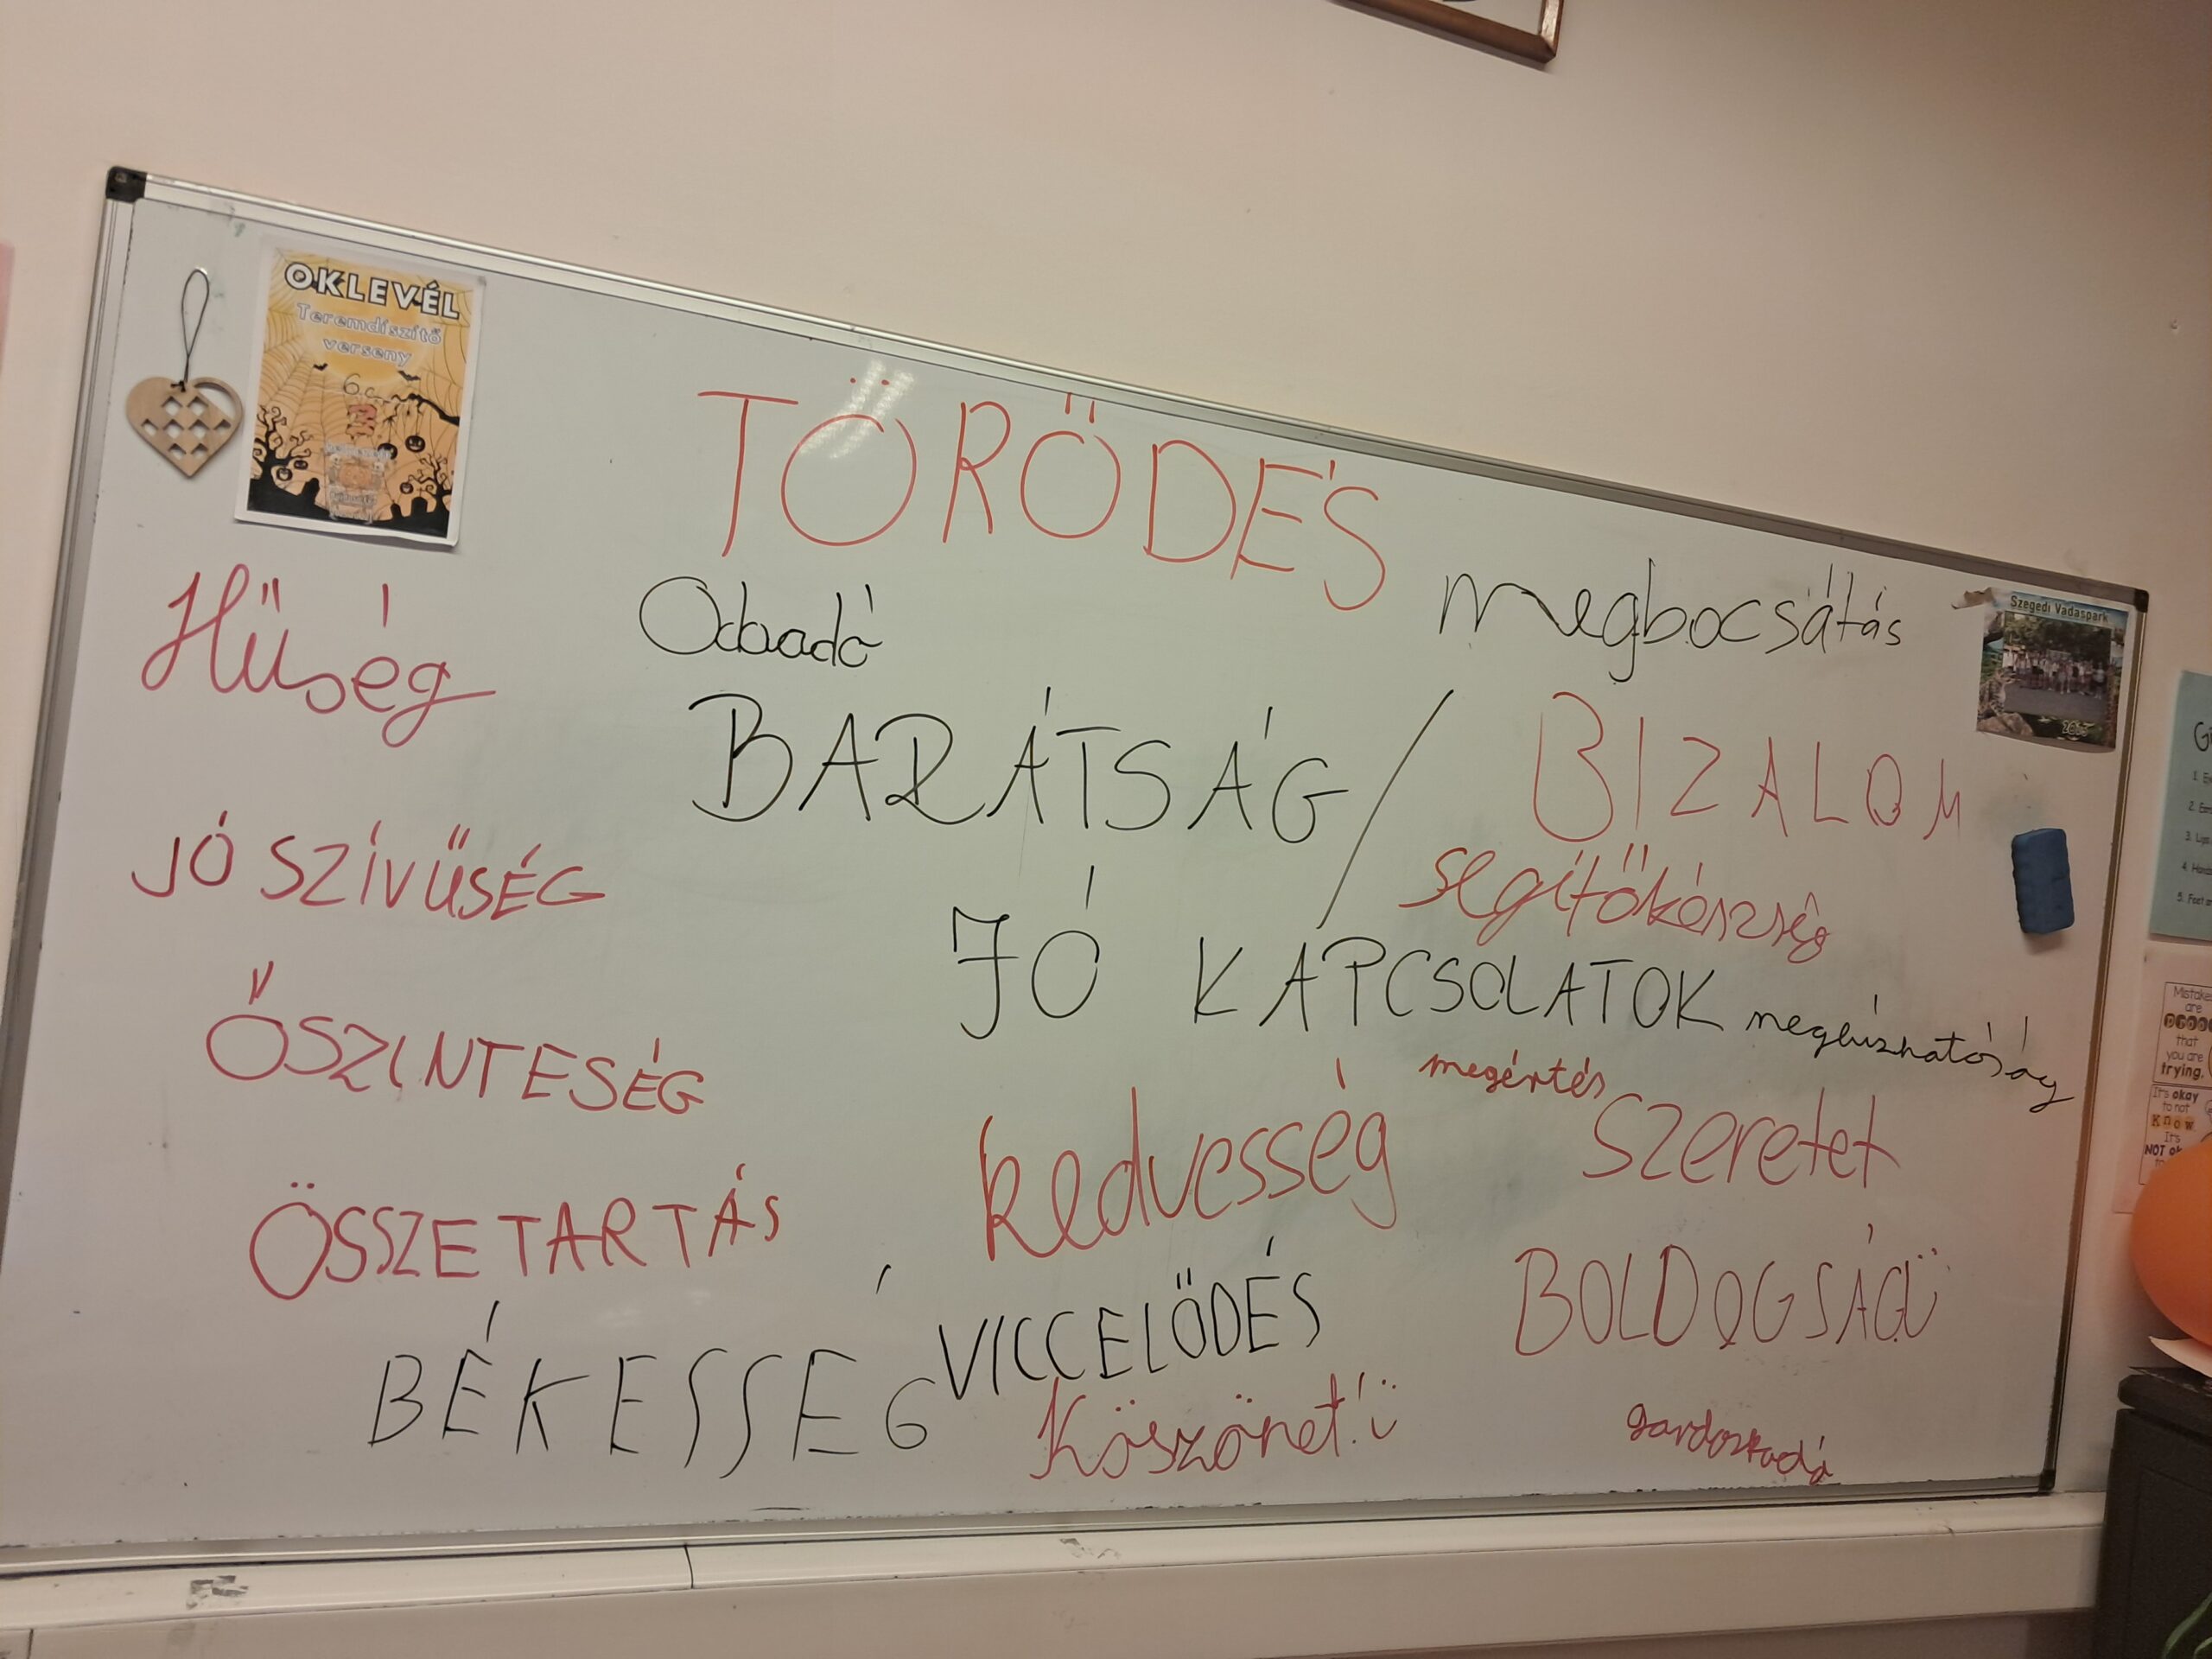 OKLEVÉL
Teremdíszítő
verseny
6.c
TÖRŐDÉS
Szegedi Vadaspark
Hűség
Odaadó
megbocsátás
BARÁTSÁG / BIZALOM
JÓ SZÍVŰSÉG
segítőkészség
JÓ KAPCSOLATOK
megbízhatóság
ŐSZINTESÉG
megértés
kedvesség
szeretet
ÖSSZETARTÁS
BÉKESSÉG
VICCELŐDÉS
BOLDOGSÁG
Köszönet!
Mistakes
are
PROOF
that
you are
trying.
It's okay
to not
know
It's
NOT